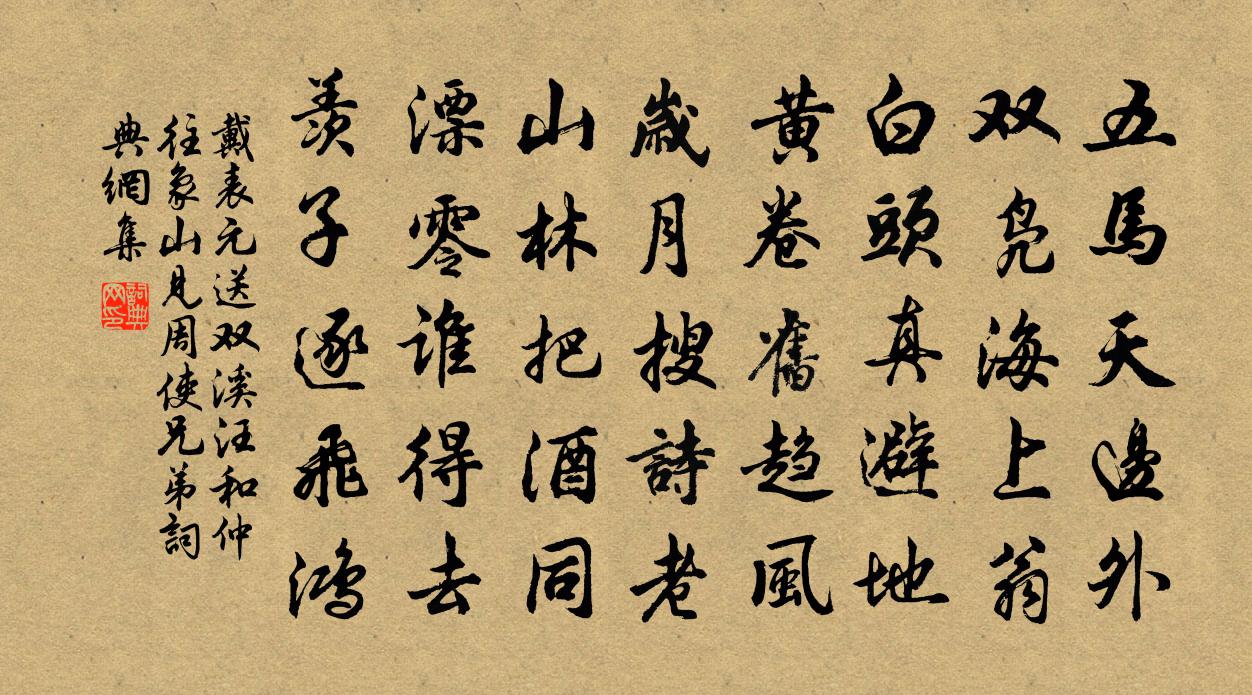 五馬天邊外
双鳧海上翁
白頭真避地
黄卷舊趋風
歳月搜詩老
山林把酒同
漂零誰得去
羨子逐飛鴻
戴表元送双溪汪和仲
往象山見周使兄弟詞
典網集
詞典网印